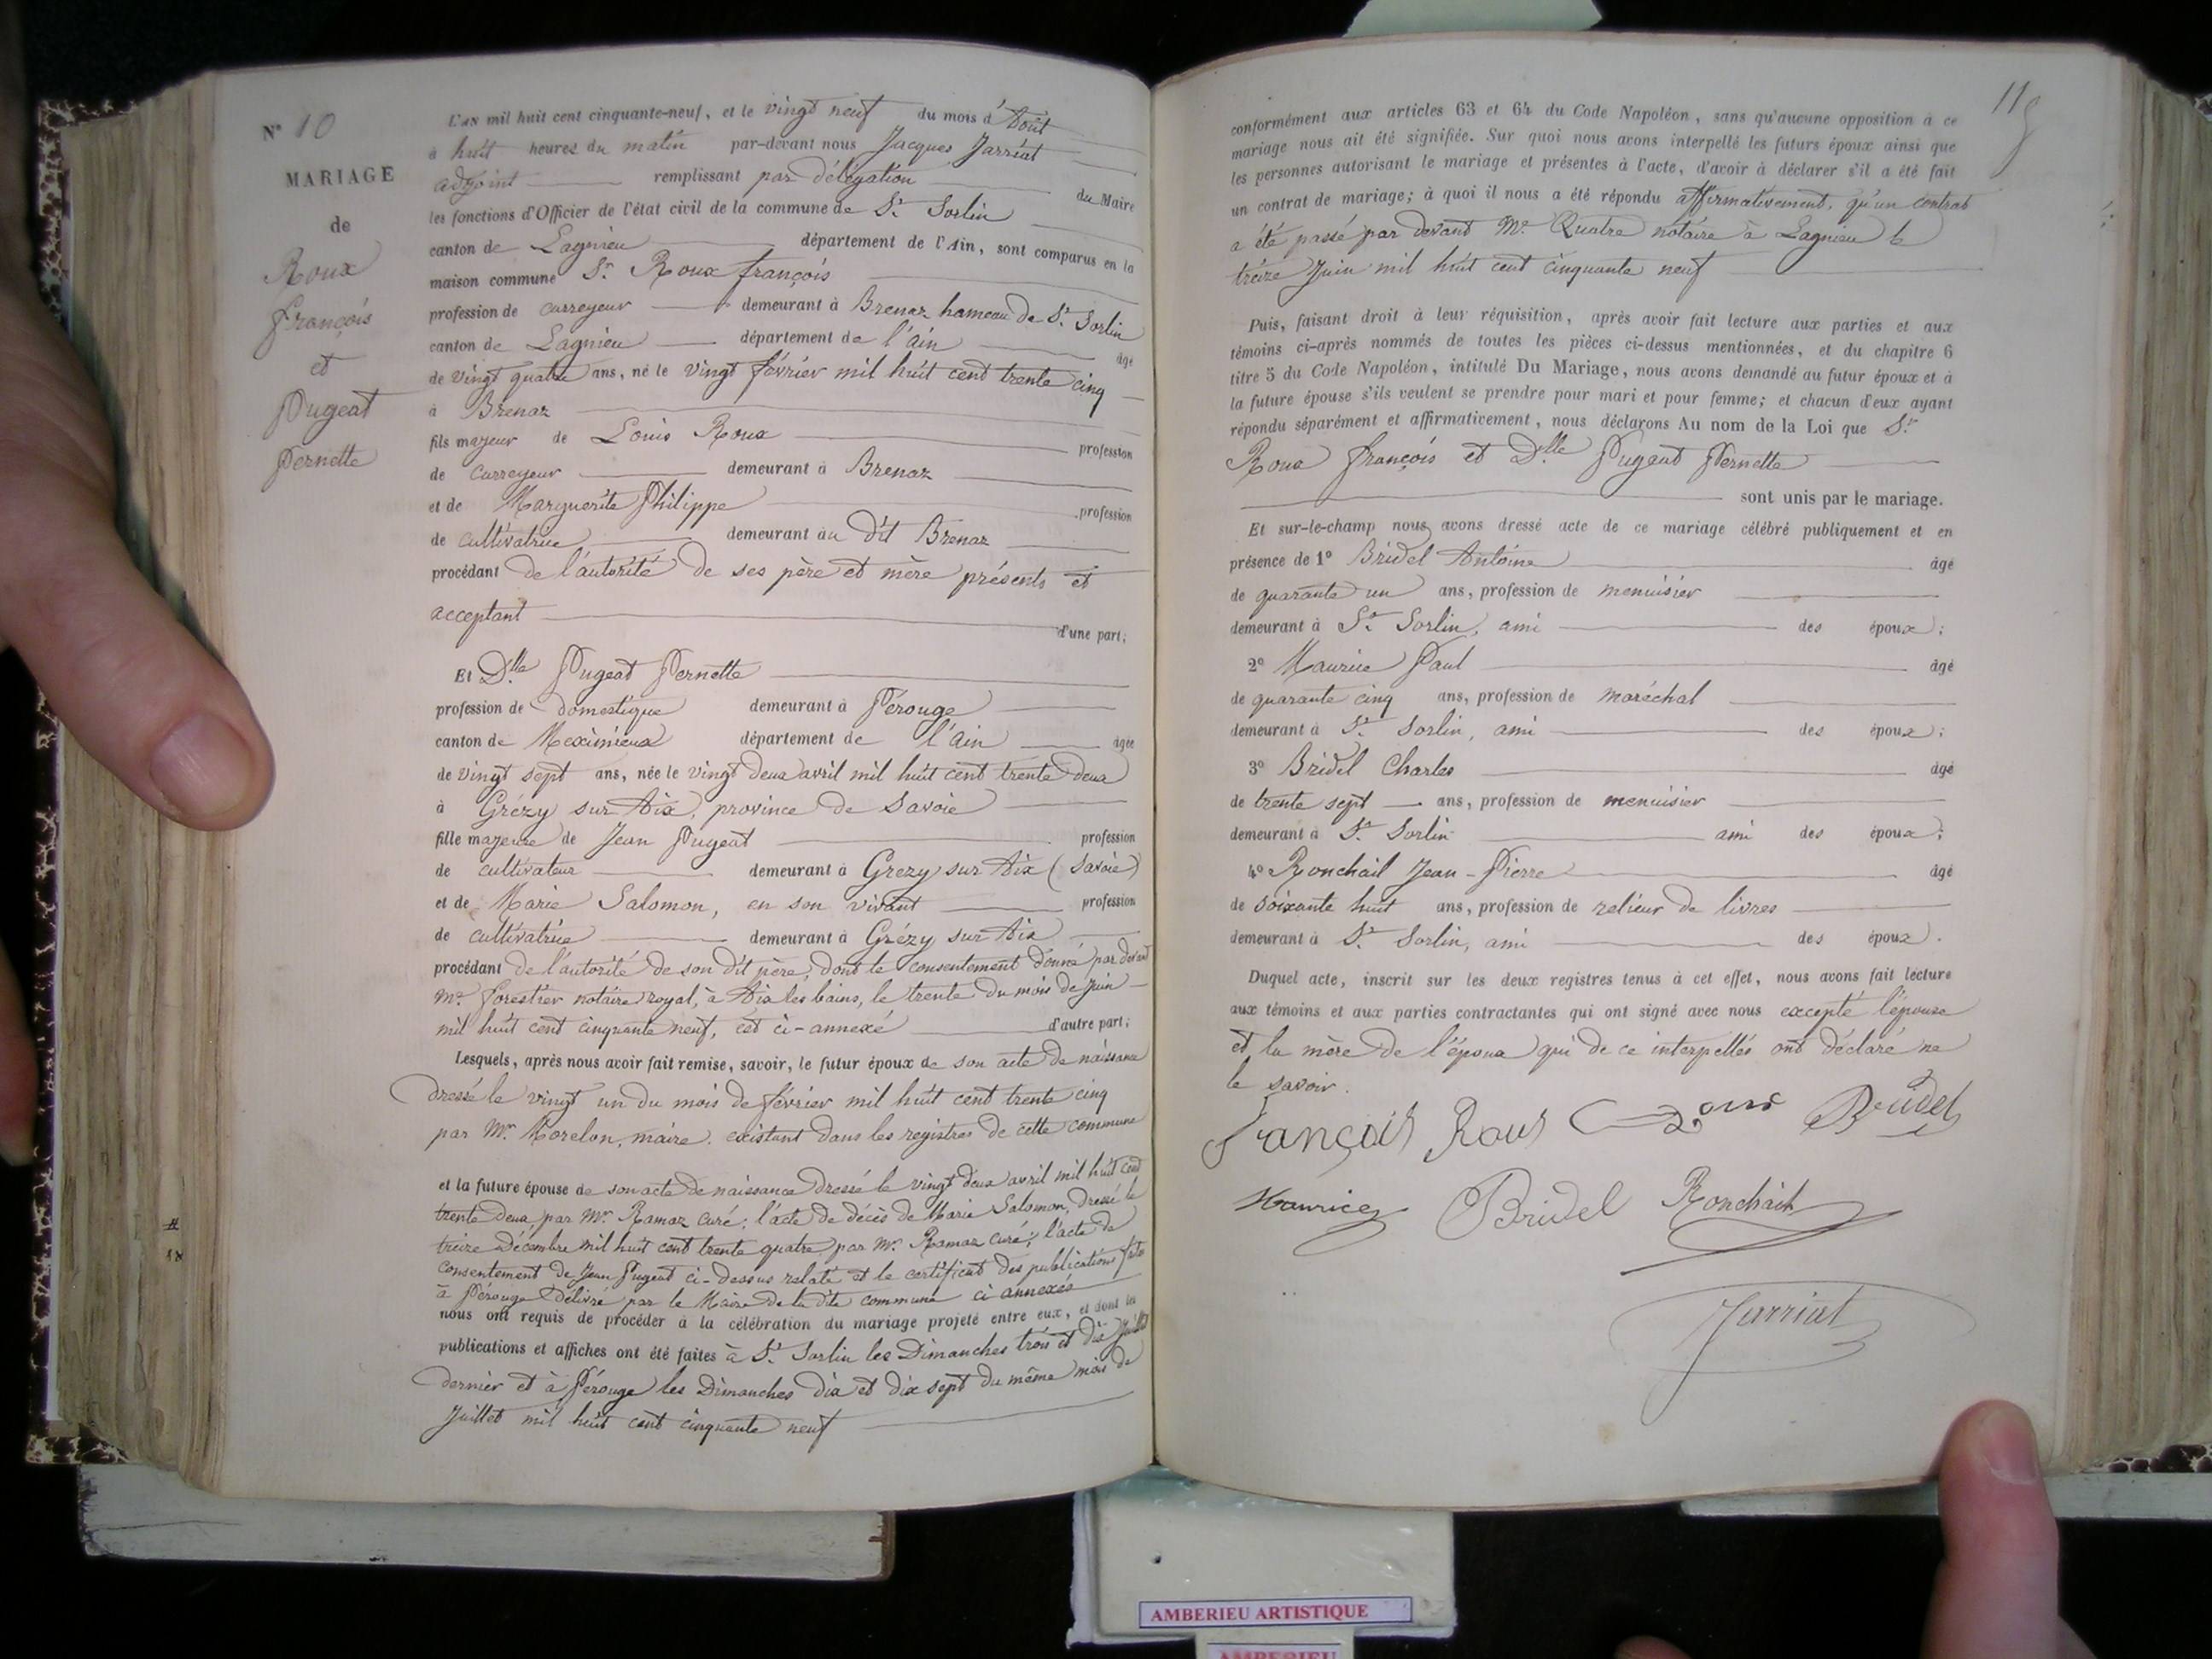 N° 10
MARIAGE
de
Roux
François
et
Pugeat
Pernette
L'AN mil huit cent cinquante-neuf, et le vingt neuf du mois d'Août
à huit heures du matin par-devant nous Jacques Jarriat
adjoint remplissant par délégation du Maire
les fonctions d'Officier de l'état civil de la commune de St. Sorlin
canton de Lagnieu département de l'Ain, sont comparus en la
maison commune Sr. Roux françois
profession de carreyeur demeurant à Brenaz hameau de St. Sorlin
canton de Lagnieu département de l'ain âgé
de vingt quatre ans, né le vingt février mil huit cent trente cinq
à Brenaz
fils majeur de Louis Roux profession
de carreyeur demeurant à Brenaz
et de Marguerite Philippe profession
de cultivatrice demeurant au dit Brenaz
procédant de l'autorité de ses père et mère présents et
acceptant d'une part;
Et Dlle Pugeat Pernette
profession de domestique demeurant à Pérouge
canton de Meximieux département de l'ain âgée
de vingt sept ans, née le vingt deux avril mil huit cent trente deux
à Grézy sur Aix, province de Savoie
fille majeure de Jean Pugeat profession
de cultivateur demeurant à Grezy sur Aix (Savoie)
et de Marie Salomon, en son vivant profession
de cultivatrice demeurant à Grézy sur Aix
procédant de l'autorité de son dit père, dont le consentement donné par devant
Me. forestier notaire royal, à Aix les bains, le trente du mois de juin
mil huit cent cinquante neuf, est ci-annexé d'autre part;
Lesquels, après nous avoir fait remise, savoir, le futur époux de son acte de naissance
dressé le vingt un du mois de février mil huit cent trente cinq
par Mr. Morelon, maire, existant dans les registres de cette commune
et la future épouse de son acte de naissance dressé le vingt deux avril mil huit cent
trente deux par Mr. Ramaz curé; l'acte de décès de Marie Salomon, dressé le
treize décembre mil huit cent trente quatre par Mr. Ramaz curé; l'acte de
consentement de Jean Pugeat ci-dessus relaté et le certificat des publications faites
à Pérouge délivré par le Maire de la dite commune ci annexés
nous ont requis de procéder à la célébration du mariage projeté entre eux, et dont les
publications et affiches ont été faites à St. Sorlin les Dimanches trois et dix Juillet
dernier et à Pérouge les Dimanches dix et dix sept du même mois de
Juillet mil huit cent cinquante neuf
conformément aux articles 63 et 64 du Code Napoléon, sans qu'aucune opposition à ce
mariage nous ait été signifiée. Sur quoi nous avons interpellé les futurs époux ainsi que
les personnes autorisant le mariage et présentes à l'acte, d'avoir à déclarer s'il a été fait
un contrat de mariage; à quoi il nous a été répondu affirmativement, qu'un contrat
a été passé par devant Me. Quatre notaire à Lagnieu le
treize Juin mil huit cent cinquante neuf
Puis, faisant droit à leur réquisition, après avoir fait lecture aux parties et aux
témoins ci-après nommés de toutes les pièces ci-dessus mentionnées, et du chapitre 6
titre 5 du Code Napoléon, intitulé Du Mariage, nous avons demandé au futur époux et à
la future épouse s'ils veulent se prendre pour mari et pour femme; et chacun d'eux ayant
répondu séparément et affirmativement, nous déclarons Au nom de la Loi que Sr.
Roux françois et Dlle Pugeat Pernette
sont unis par le mariage.
Et sur-le-champ nous avons dressé acte de ce mariage célébré publiquement et en
présence de 1° Bridel Antoine âgé
de quarante un ans, profession de menuisier
demeurant à St. Sorlin, ami des époux;
2° Maurice Paul âgé
de quarante cinq ans, profession de maréchal
demeurant à St. Sorlin, ami des époux;
3° Bridel Charles âgé
de trente sept ans, profession de menuisier
demeurant à St. Sorlin ami des époux;
4° Ronchail Jean-Pierre âgé
de soixante huit ans, profession de relieur de livres
demeurant à St. Sorlin, ami des époux.
Duquel acte, inscrit sur les deux registres tenus à cet effet, nous avons fait lecture
aux témoins et aux parties contractantes qui ont signé avec nous excepté l'épouse
et la mère de l'époux qui de ce interpellés ont déclaré ne
le savoir.
françois Roux Bridel
Maurice Bridel Ronchail
Jarriat
AMBERIEU ARTISTIQUE
AMBERIEU